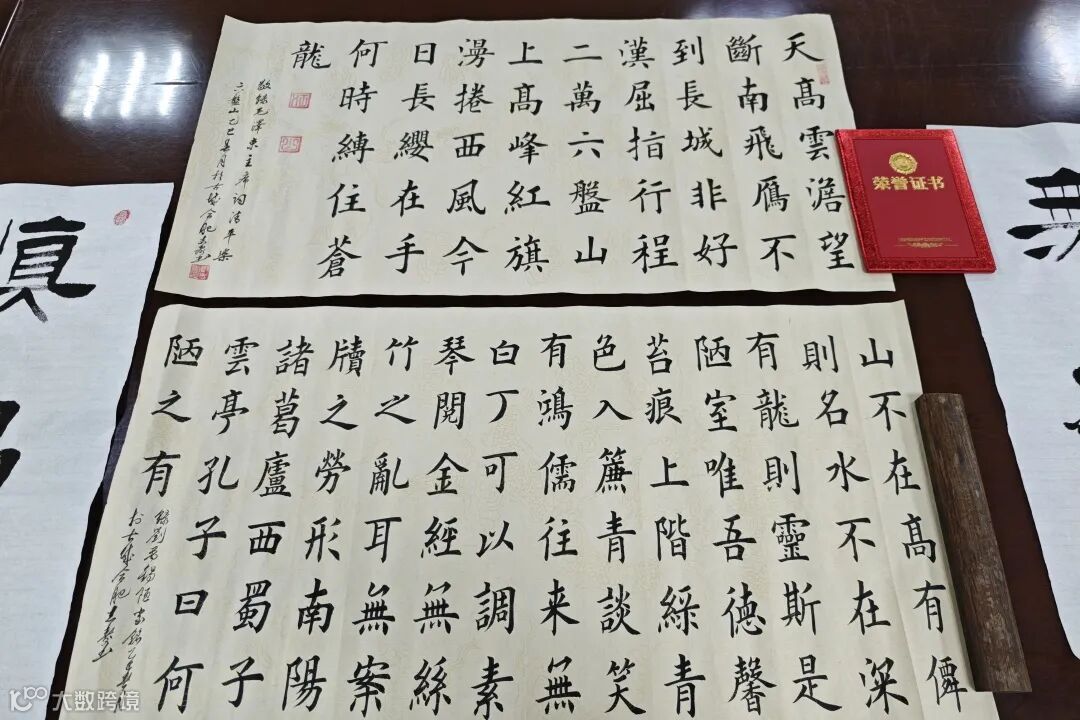 天髙雲澹望
斷南飛鴈不
到長城非好
漢屈指行程
二萬六盤山
上髙峰紅旗
漫捲西風今
日長纓在手
何時縛住蒼
龍
敬錄毛澤東主席詞清平樂
六盤山乙巳春月於古廬合肥
荣誉证书
山不在髙有僊
則名水不在深
有龍則靈斯是
陋室唯吾德馨
苔痕上階綵青
色入簾青談笑
有鴻儒往来無
白丁可以調素
琴閱金經無絲
竹之亂耳無案
牘之勞形南陽
諸葛廬西蜀子
雲亭孔子曰何
陋之有
大数跨境